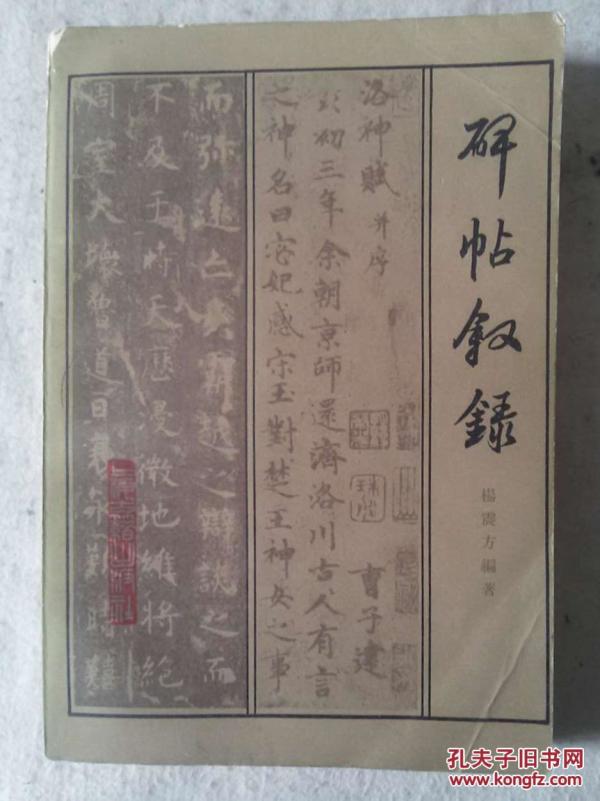 碑帖叙錄
楊震方編著
洛神賦 并序
曹子建
初三年余朝京師還濟洛川古人有言
之神名曰宓妃感宋玉對楚王神女之事
而弥遠
之辯說之而
不及于時天歷漫微地維將絶
周室大壞
孔夫子旧书网
www.kongfz.com